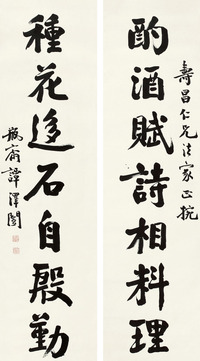 壽昌仁兄法家正捥
酌酒賦詩相料理
種花移石自殷勤
瓶齋譚澤闓